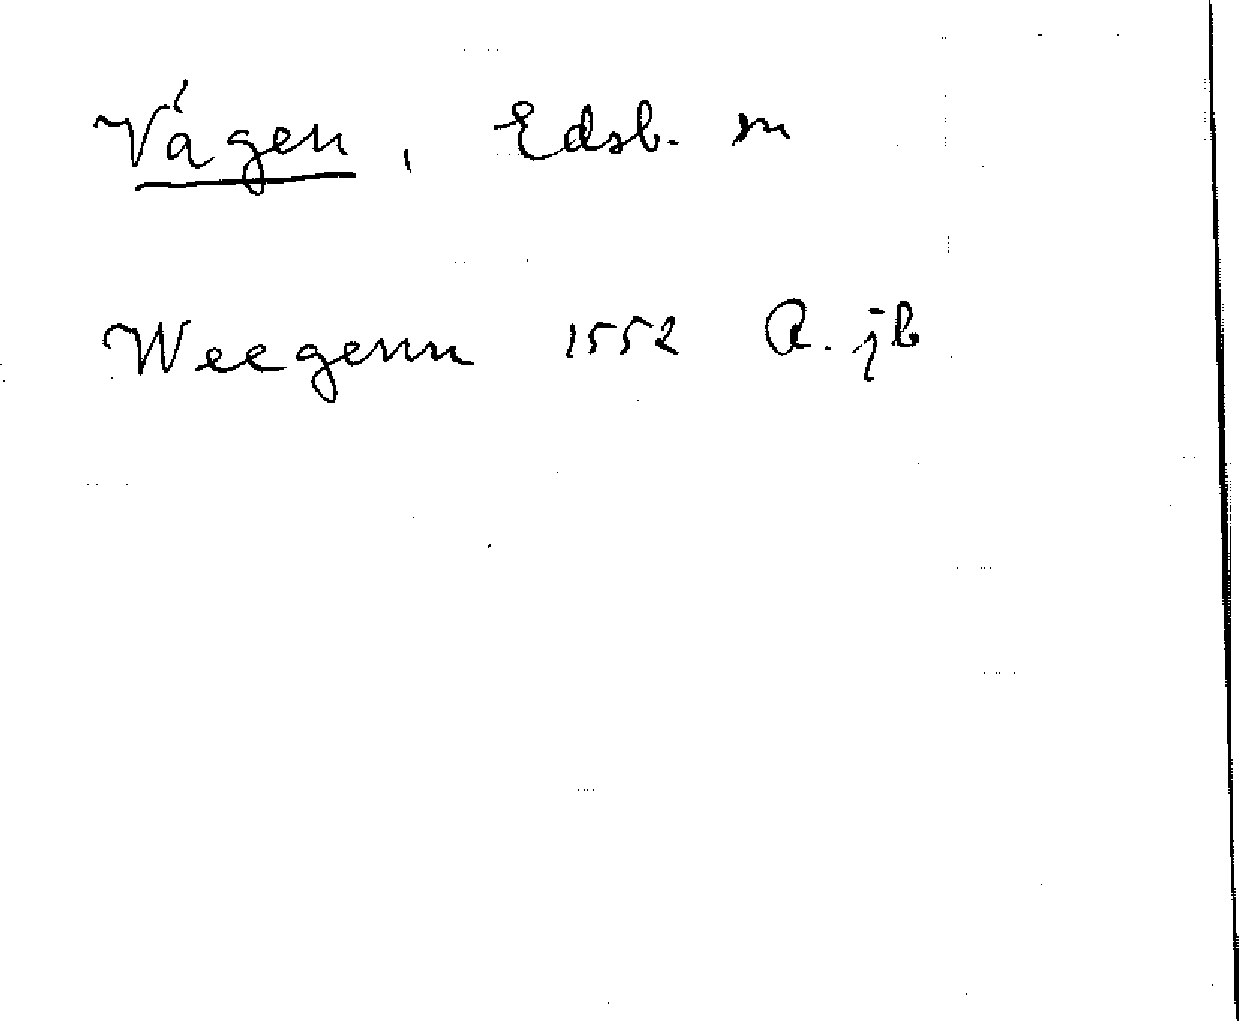 Vägen, Edsb. sn
Weegenn 1552 R. jb